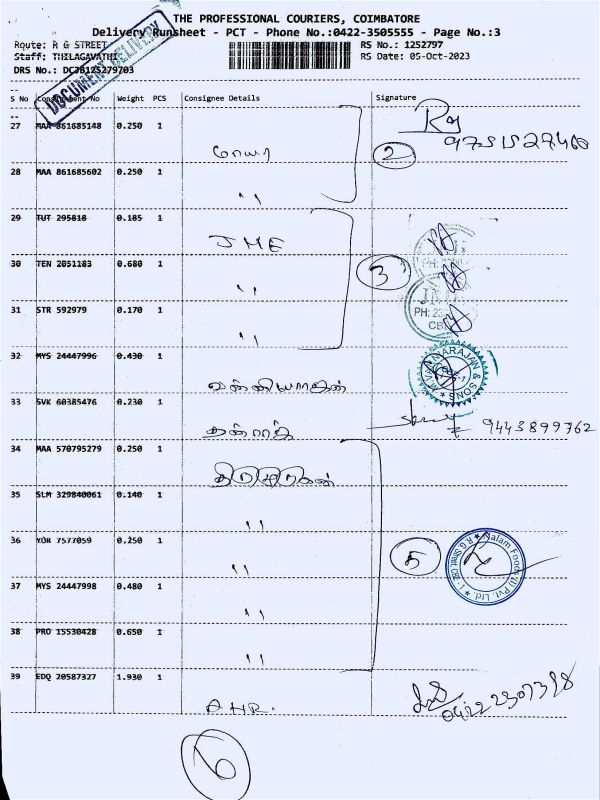 THE PROFESSIONAL COURIERS, COIMBATORE
Delivery Runsheet - PCT - Phone No.:0422-3505555 - Page No.:3
Route: R G STREET
RS No.: 1252797
Staff: THILAGAVATHI
RS Date: 05-Oct-2023
DRS No.:
DOCUMENT DELIVERY
S No Consignment No Weight PCS Consignee Details Signature
27 MAA 861685148 0.250 1
2
28 MAA 861685602 0.250 1
"
29 TUT 295818 0.185 1
JME
30 TEN 2051183 0.680 1
" 3
31 STR 592979 0.170 1
"
JME
PH: 23
CBE
32 MYS 24447996 0.430 1
NARAJAN & SONS
33 SVK 60385476 0.230 1
9443899762
34 MAA 570795279 0.250 1
35 SLM 329840061 0.140 1
"
36 YOR 7577059 0.250 1
" 5
Nalam Foods (I) Pvt. Ltd. ★ R G Street, CBE - 1 ★
37 MYS 24447998 0.480 1
"
38 PRO 15530428 0.650 1
"
39 EDQ 20587327 1.930 1
6